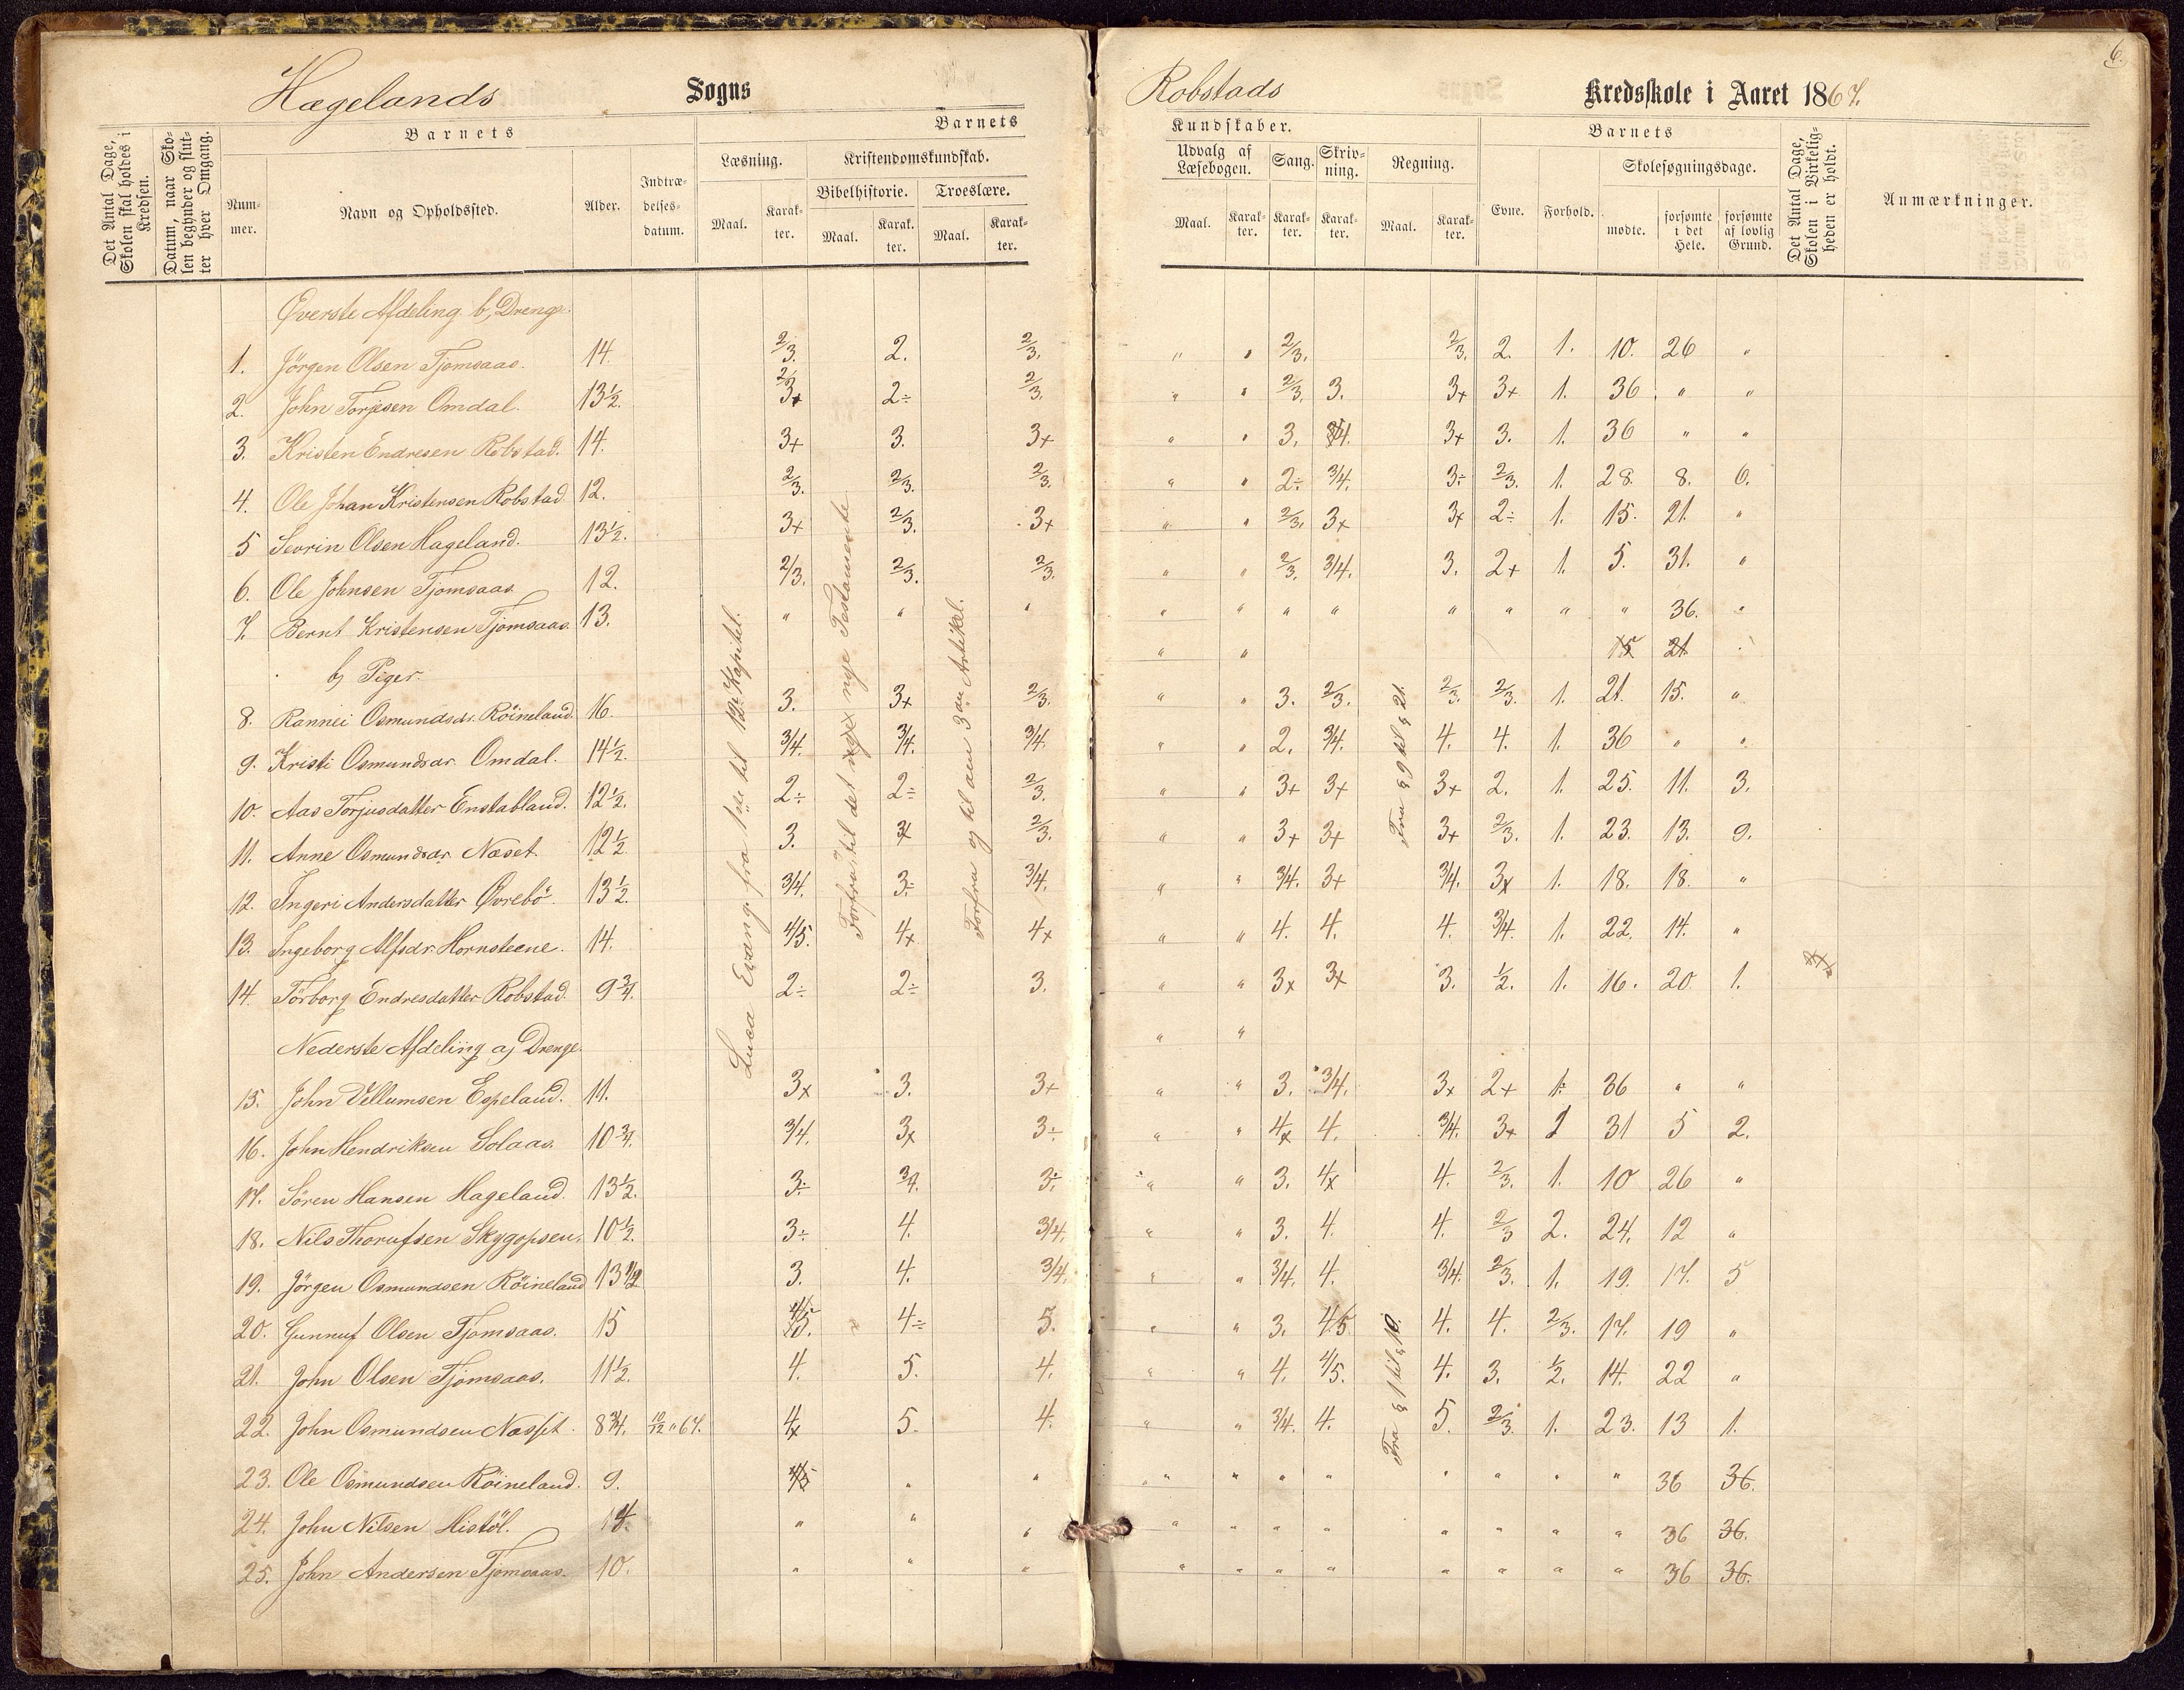 6.
Hægelands Sogns Robstads Kredsskole i Aaret 1867.
Det Antal Dage, Skolen skal holdes i Kredsen.
Datum, naar Skolen begynder og slutter hver Omgang.
Barnets
Nummer.
Navn og Opholdssted.
Alder.
Indtrædelsesdatum.
Barnets
Læsning.
Maal.
Karakter.
Kristendomskundskab.
Bibelhistorie.
Maal.
Karakter.
Troeslære.
Maal.
Karakter.
Kundskaber.
Udvalg af Læsebogen.
Maal.
Karakter.
Sang.
Karakter.
Skrivning.
Karakter.
Regning.
Maal.
Karakter.
Barnets
Evne.
Forhold.
Skolesøgningsdage.
mødte.
forsømte i det Hele.
forsømte af lovlig Grund.
Det Antal Dage, Skolen i Virkeligheden er holdt.
Anmærkninger.
Øverste Afdeling b, Drenge.
1. Jörgen Olsen Tjomsaas. 14. 2/3. 2. 2/3. " " 2/3. 2/3. 2. 1. 10. 26 "
2. John Torjesen Omdal. 13½. 3+ 2÷ 2/3. " " 2/3. 3. 3+ 3+ 1. 36 " "
3. Kristen Endresen Robstad. 14. 3+ 3. 3+ " " 3. 3+ 3. 1. 36 " "
4. Ole Johan Kristensen Robstad 12. 2/3. 2/3. 2/3. " " 2÷ 3/4. 3÷ 2/3. 1. 28. 8. 6.
5 Sevrin Olsen Hageland. 13½. 3+ 2/3. 3+ " " 2/3. 3+ 3+ 2÷ 1. 15. 21. "
6. Ole Johnsen Tjomsaas 12. 2/3. 2/3. 2/3. " " 2/3. 3/4. 3. 2+ 1. 5. 31. "
7. Bernt Kristensen Tjomsaas. 13. " " " " " " " " " " " 36. "
b, Piger. " " 15 21
8. Rannei Osmundsdr. Röineland. 16. 3. 3+ 2/3. " " 3. 2/3. 2/3. 2/3. 1. 21. 15. "
9. Kristi Osmundsdr. Omdal. 14½. 3/4. 3/4. 3/4. " " 2. 3/4. 4. 4. 1. 36 " "
10. Aas Torjusdatter Enstabland. 12½. 2÷ 2÷ 2/3. " " 3+ 3+ 3+ 2. 1. 25. 11. 3.
11. Anne Osmundsdr. Næset 12½. 3. 3+ 2/3. " " 3+ 3+ 3+ 2/3. 1. 23. 13. 9.
12. Ingeri Andersdatter Øvrebö. 13½. 3/4. 3÷ 3/4. " " 3/4. 3+ 3/4. 3+ 1. 18. 18. "
13. Ingeborg Alfsdr. Hornsteene. 14. 4/5. 4+ 4+ " " 4. 4. 4. 3/4. 1. 22. 14. "
14. Törborg Endresdatter Robstad. 9¾. 2÷ 2÷ 3. " " 3+ 3+ 3. 1/2. 1. 16. 20 1.
Nederste Afdeling a, Drenge. " "
15. John Vellumsen Espeland. 11. 3+ 3. 3+ " " 3. 3/4. 3+ 2+ 1. 36 " "
16. John Hendriksen Solaas. 10¾. 3/4. 3+ 3÷ " " 4+ 4. 3/4. 3+ 1 31 5 2.
17. Sören Hansen Hageland. 13½. 3÷ 3/4. 3÷ " " 3. 4+ 4. 2/3. 1. 10 26 "
18. Nils Skygopsen. 10½. 3÷ 4. 3/4. " " 3. 4. 4. 2/3 2. 24. 12 "
19. Jörgen Osmundsen Röineland 13½ 3. 4. 3/4. " " 3/4. 4. 3/4. 2/3. 1. 19. 17. 5
20. Gunnuf Olsen Tjomsaas. 15 4/5. 4÷ 5. " " 3. 4/5 4. 4. 2/3. 17. 19 "
21. John Olsen Tjomsaas. 11½. 4. 5. 4. " " 4. 4/5. 4. 3. 1/2. 14. 22 "
22. John Osmundsen Næsset. 8¾. 10/12 " 67. 4+ 5. 4. " " 3/4. 4. 5. 2/3. 1. 23. 13 1.
23. Ole Osmundsen Röineland. 9. 4/5 " " " " " " " " " " 36 36.
24. John Nilsen Histöl. 14. " " " " " " " " " " " 36 36.
25. John Andersen Tjomsaas. 10. " " " " " " " " " " " 36 36.
Luca Evang. fra 1ste til 12te Kapitel.
Forfra til det nye Testamente
Forfra og til den 3die Artikel.
Fra § 9 til § 21.
Fra § 1 til § 10.